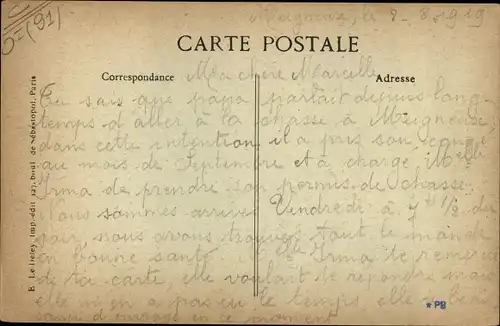 Meigneux, le 9-8-1919
D=(91)
CARTE POSTALE
Correspondance
Adresse
Ma chère Marcelle
Tu sais que papa parlait depuis long-
temps d'aller à la chasse à Meigneux
dans cette intention il a pris son congé
au mois de Septembre et a chargé Melle
Irma de prendre son permis de chasse.
Nous sommes arrivés Vendredi à 7h 1/2 du
soir, nous avons trouvé tout le monde
en bonne santé. Melle Irma te remercie
de ta carte elle voulait te répondre mais
elle n'en a pas eu le temps elle a
d'ouvrage en ce moment
E. Le Deley, Imp.-édit. 127, boul. de Sébastopol, Paris
*PB